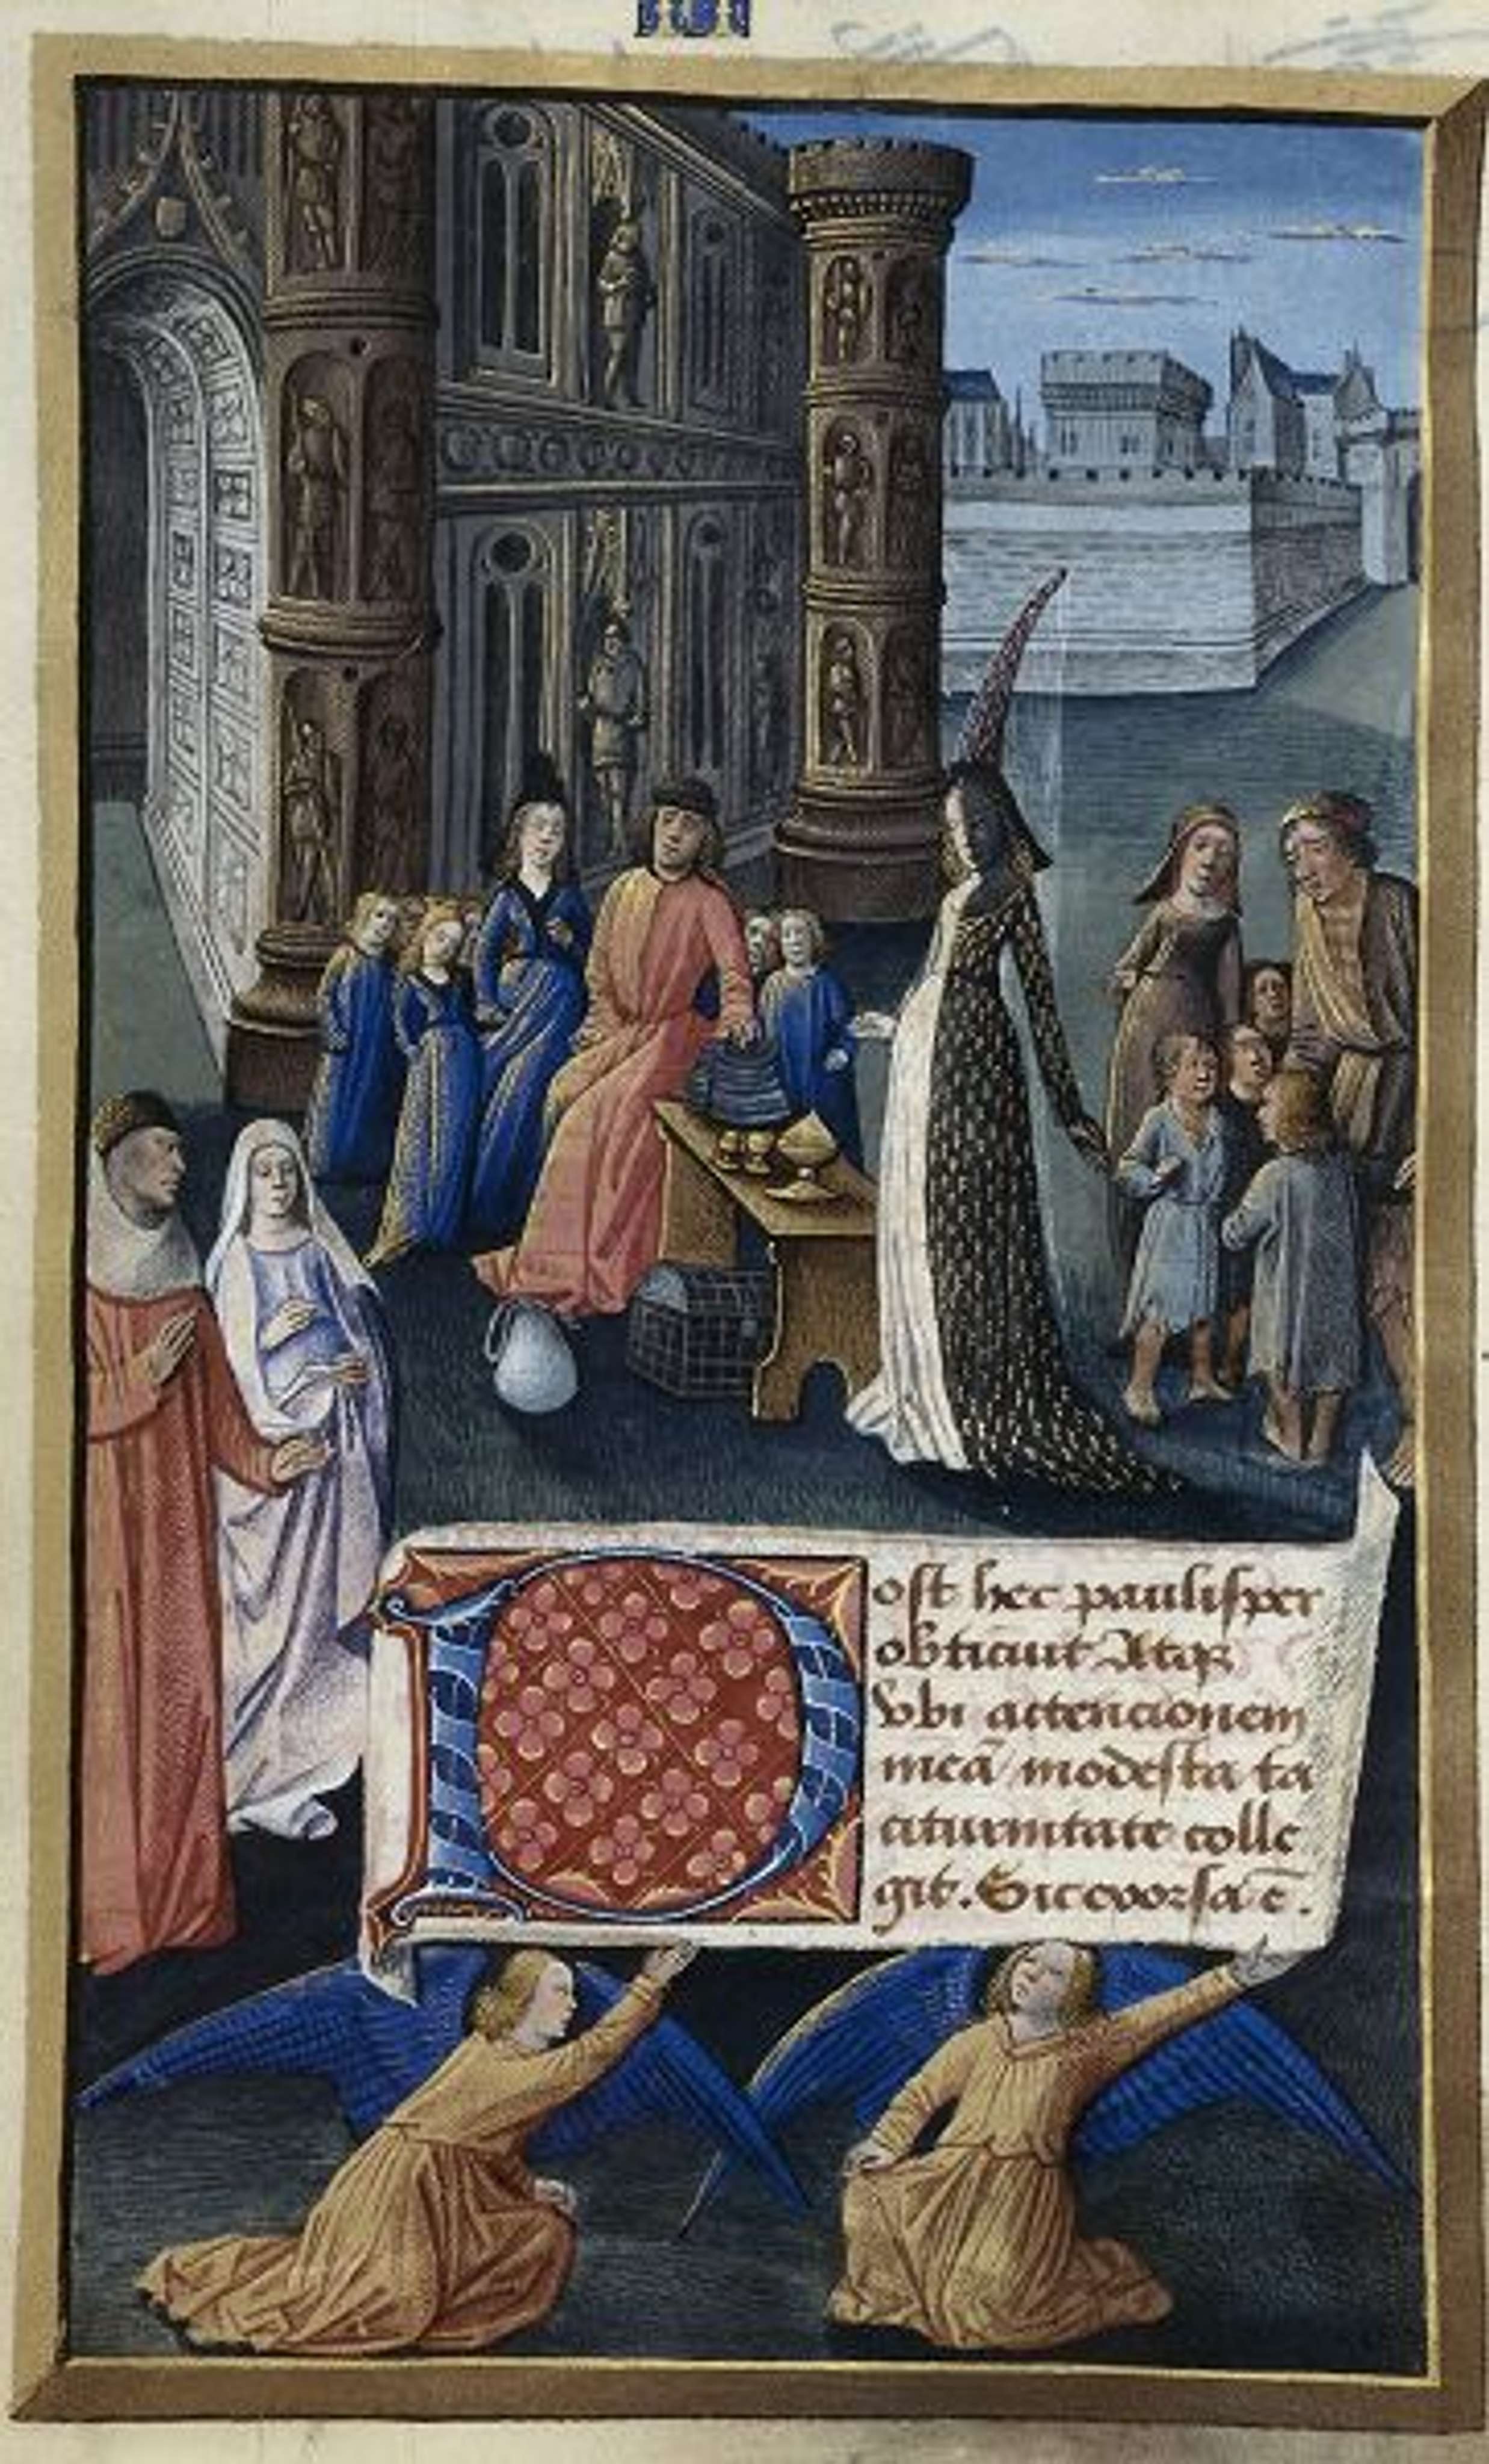 Post hec paulisper
obticuit Atqꝫ
Vbi attencionem
meā modesta ta
citurnitate colle
git. Sic exorsa ē.